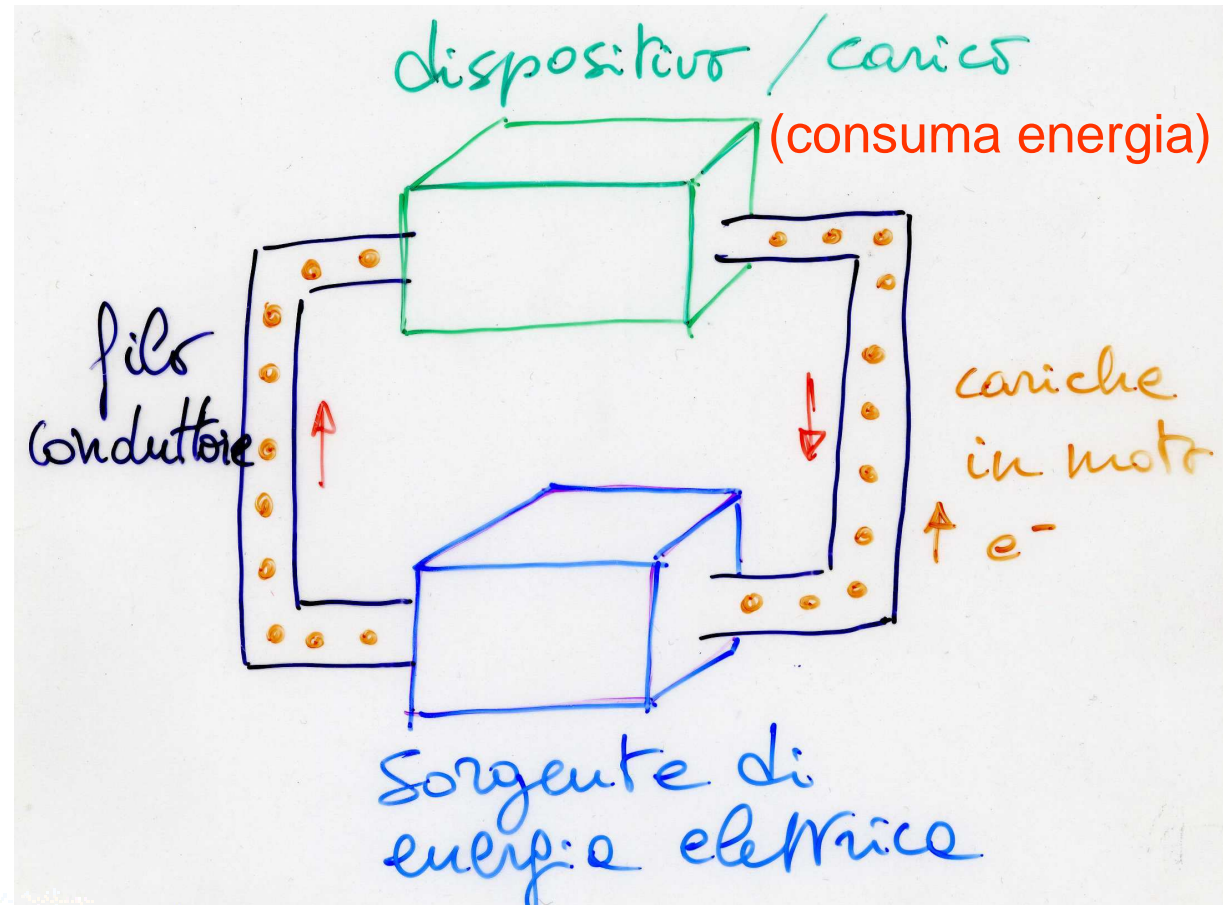 dispositivo / carico
(consuma energia)
filo
conduttore
cariche
in moto
e⁻
sorgente di
energia elettrica